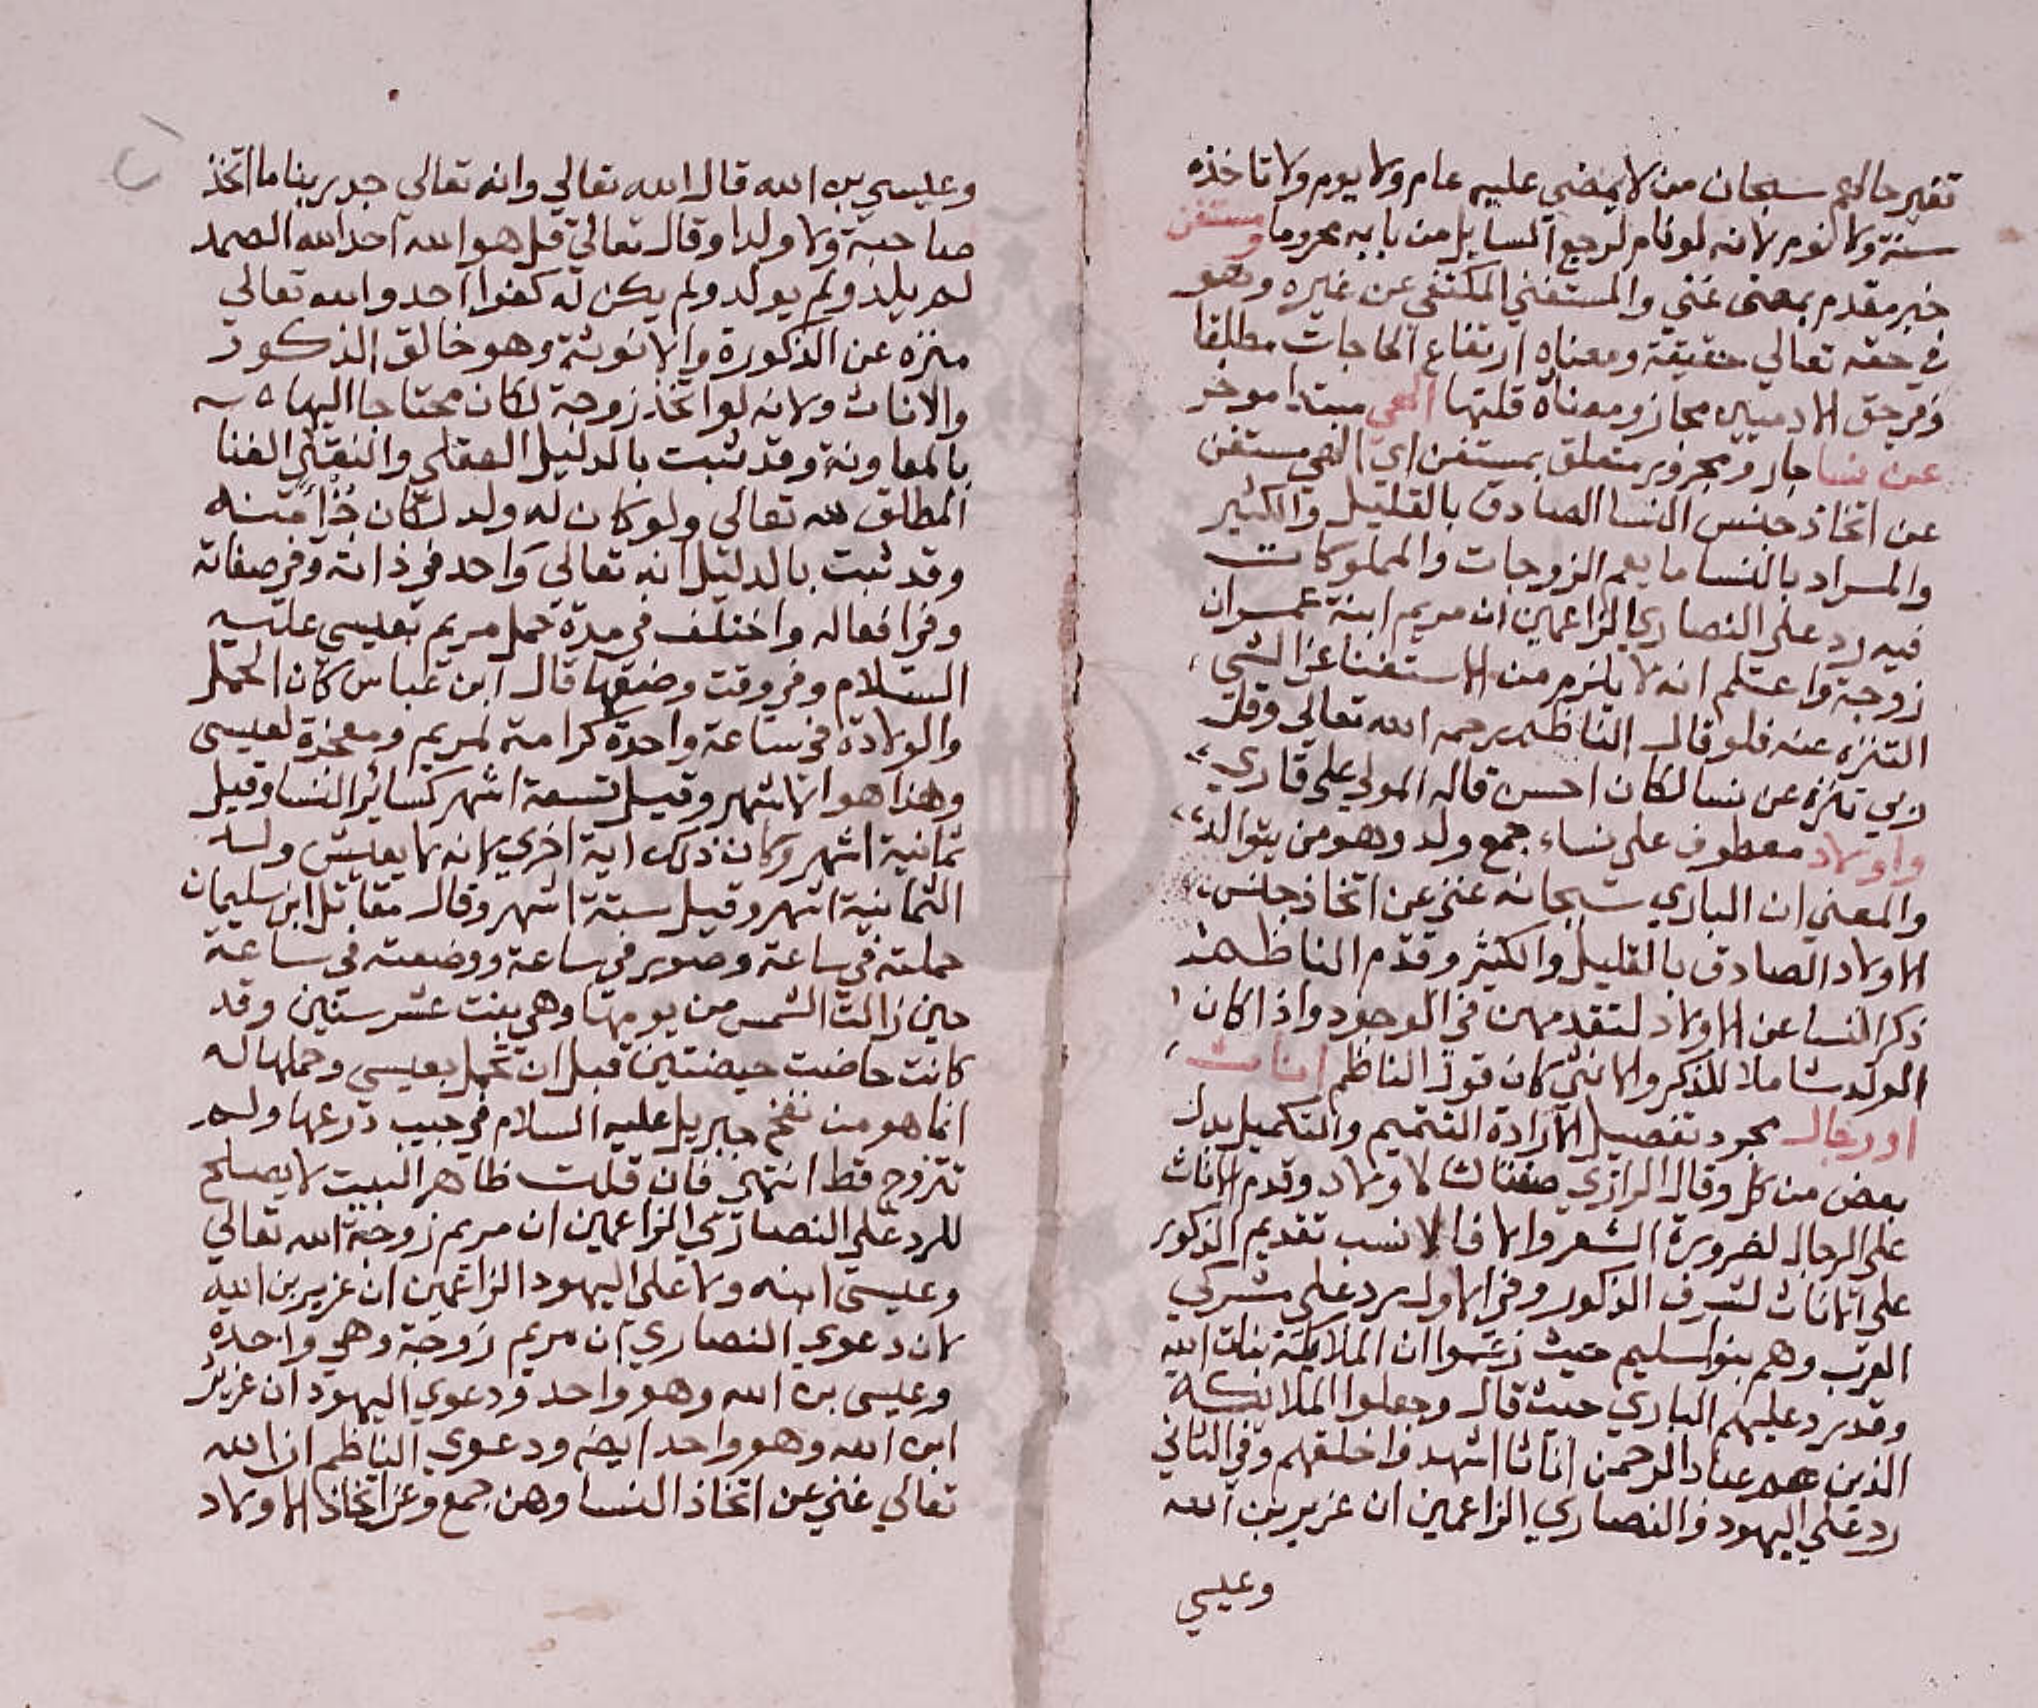 تغير حالهم سبحان من لا يمضي عليه عام ولا يوم ولا تاخذه
سنة ولا نوم لانه لو نام لرجع السايل من بابه محروما ومستغن
خبر مقدم بمعنى غني والمستغني المكتفي عن غيره وهو
في حقه تعالي حقيقة ومعناه ارتفاع الحاجات مطلقا
وفي حق الادميين مجاز ومعناه قلتها الهي مبتدا موخر
عن نسا جار ومجرور متعلق بمستغن اي الهي مستغن
عن اتخاذ جنس النسا الصادق بالقليل والكثير
والمراد بالنسا ما يعم الزوجات والمملوكات
فيه رد على النصاري الزاعمين ان مريم ابنة عمران
زوجة واعلم انه لا يلزم من الاستغنا عن الشي
التنزه عنه فلو قال الناظم رحمه الله تعالي وقل
ربي تنزه عن نسا لكان احسن قاله المولي علي قاري
واولاد معطوف على نساء جمع ولد وهو من يتوالد
والمعني ان الباري سبحانه غني عن اتخاذ جنس
الاولاد الصادق بالقليل والكثير وقدم الناظم
ذكر النسا عن الاولاد لتقدمهن في الوجود واذا كان
الولد شاملا للذكر والانثي كان قول الناظم اناث
او رجال مجرد تفصيل لارادة التتميم والتكميل بدل
بعض من كل وقال الرازي صفتان لاولاد وقدم الاناث
على الرجال لضرورة الشعر والا فالانسب تقديم الذكور
على الاناث لشرف الذكور وفي الاول رد علي مشركي
العرب وهم بنو سليم حيث زعموا ان الملائكة بنات الله
وقد رد عليهم الباري حيث قال وجعلوا الملائكه
الذين هم عباد الرحمن اناثا اشهدوا خلقهم وفي الثاني
رد علي اليهود والنصاري الزاعمين ان عزير بن الله
وعيسي
وعيسي بن الله قال الله تعالي وانه تعالي جد ربنا ما اتخذ
صاحبة ولا ولدا وقال تعالي قل هو الله احد الله الصمد
لم يلد ولم يولد ولم يكن له كفوا احد والله تعالي
منزه عن الذكورة والانوثة وهو خالق الذكور
والاناث ولانه لو اتخذ زوجة لكان محتاجا اليها
بالمعاونة وقد ثبت بالدليل العقلي والنقلي الغنا
المطلق لله تعالى ولو كان له ولد لكان جزأ منه
وقد ثبت بالدليل انه تعالي واحد في ذاته وفي صفاته
وفي افعاله واختلف في مدة حمل مريم بعيسي عليه
السلام وفي وقت وضعها قال ابن عباس كان الحمل
والولادة في ساعة واحدة كرامة لمريم ومعجزة لعيسى
وهذا هو الاشهر وقيل تسعة اشهر كسائر النسا وقيل
ثمانية اشهر وكان ذلك اية اخري لانه لا يعيش ولد
الثمانية اشهر وقيل ستة اشهر وقال مقاتل ابن سليمان
حملته في ساعة وصور في ساعة ووضعته في ساعة
حين زالت الشمس من يومها وهي بنت عشر سنين وقد
كانت حاضت حيضتين قبل ان تحمل بعيسي وحملها له
انما هو من نفخ جبريل عليه السلام في جيب درعها ولم
تتزوج قط انتهي فان قلت ظاهر البيت لا يصلح
للرد علي النصاري الزاعمين ان مريم زوجة الله تعالي
وعيسى ابنه ولا على اليهود الزاعمين ان عزير بن الله
لان دعوي النصاري ان مريم زوجة وهي واحدة
وعيسى بن الله وهو واحد ودعوي اليهود ان عزير
ابن الله وهو واحد ايضا ودعوي الناظم ان الله
تعالي غني عن اتخاذ النسا وهن جمع وعن اتخاذ الاولاد